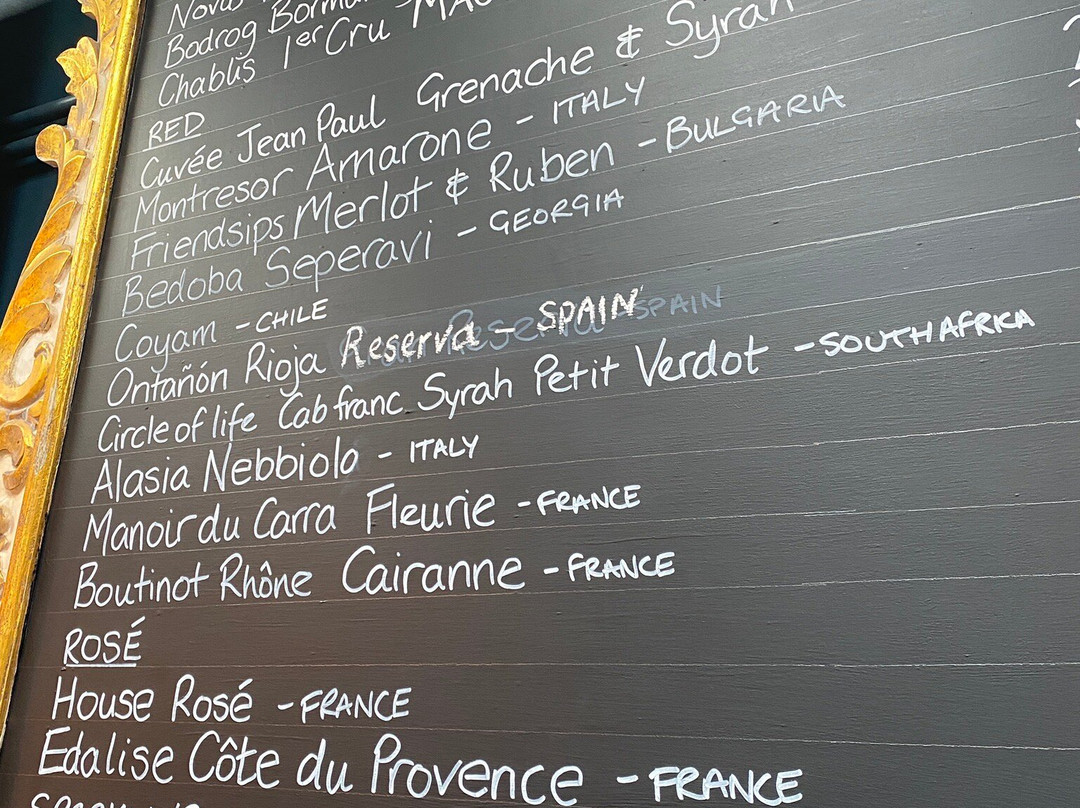 Bodrog
Chablis 1er Cru
RED
Cuvée Jean Paul Grenache & Syrah
Montresor Amarone - ITALY
Friendsips Merlot & Ruben - BULGARIA
Bedoba Seperavi - GEORGIA
Coyam - CHILE
Ontañón Rioja Reserva - SPAIN
Circle of life Cab franc Syrah Petit Verdot - SOUTH AFRICA
Alasia Nebbiolo - ITALY
Manoir du Carra Fleurie - FRANCE
Boutinot Rhône Cairanne - FRANCE
ROSÉ
House Rosé - FRANCE
Edalise Côte du Provence - FRANCE